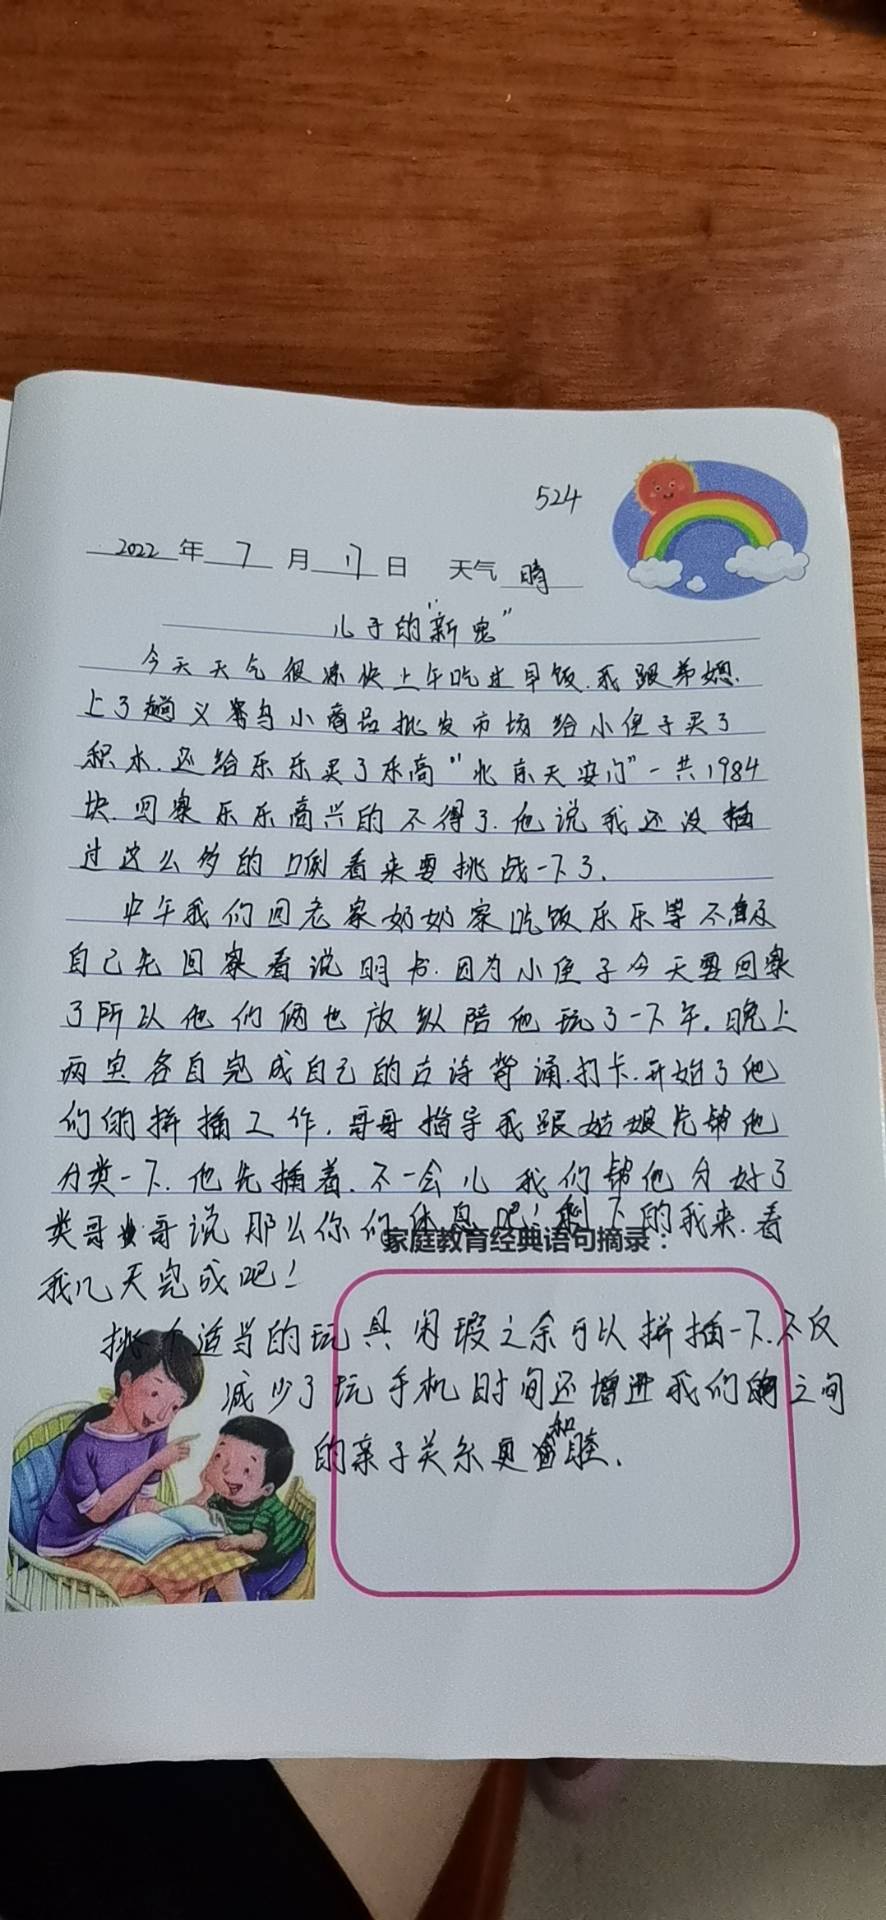 524
2022年 7 月 17 日 天气 晴
儿子的"新宠"
今天天气很凉快上午吃过早饭.我跟弟媳.
上了趟义乌小商品批发市场给小侄子买了
积木.还给乐乐买了乐高"北京天安门"一共1984
块.回家乐乐高兴的不得了.他说我还没插
过这么多的 看来要挑战一下了.
中午我们回老家奶奶家吃饭乐乐等不及
自己先回家看说明书.因为小侄子今天要回家
了所以他们俩也放纵陪他玩了一下午.晚上
两宝各自完成自己的古诗背诵.打卡.开始了他
们的拼插工作.哥哥指导我跟姑姑先帮他
分类一下.他先插着.不一会儿我们帮他分好了
类哥哥说那么你们休息吧!剩下的我来.看
家庭教育经典语句摘录：
我几天完成吧!
挑个适当的玩具闲瑕之余可以拼插一下.不仅
减少了玩手机时间还增进我们之间
的亲子关系更和睦.